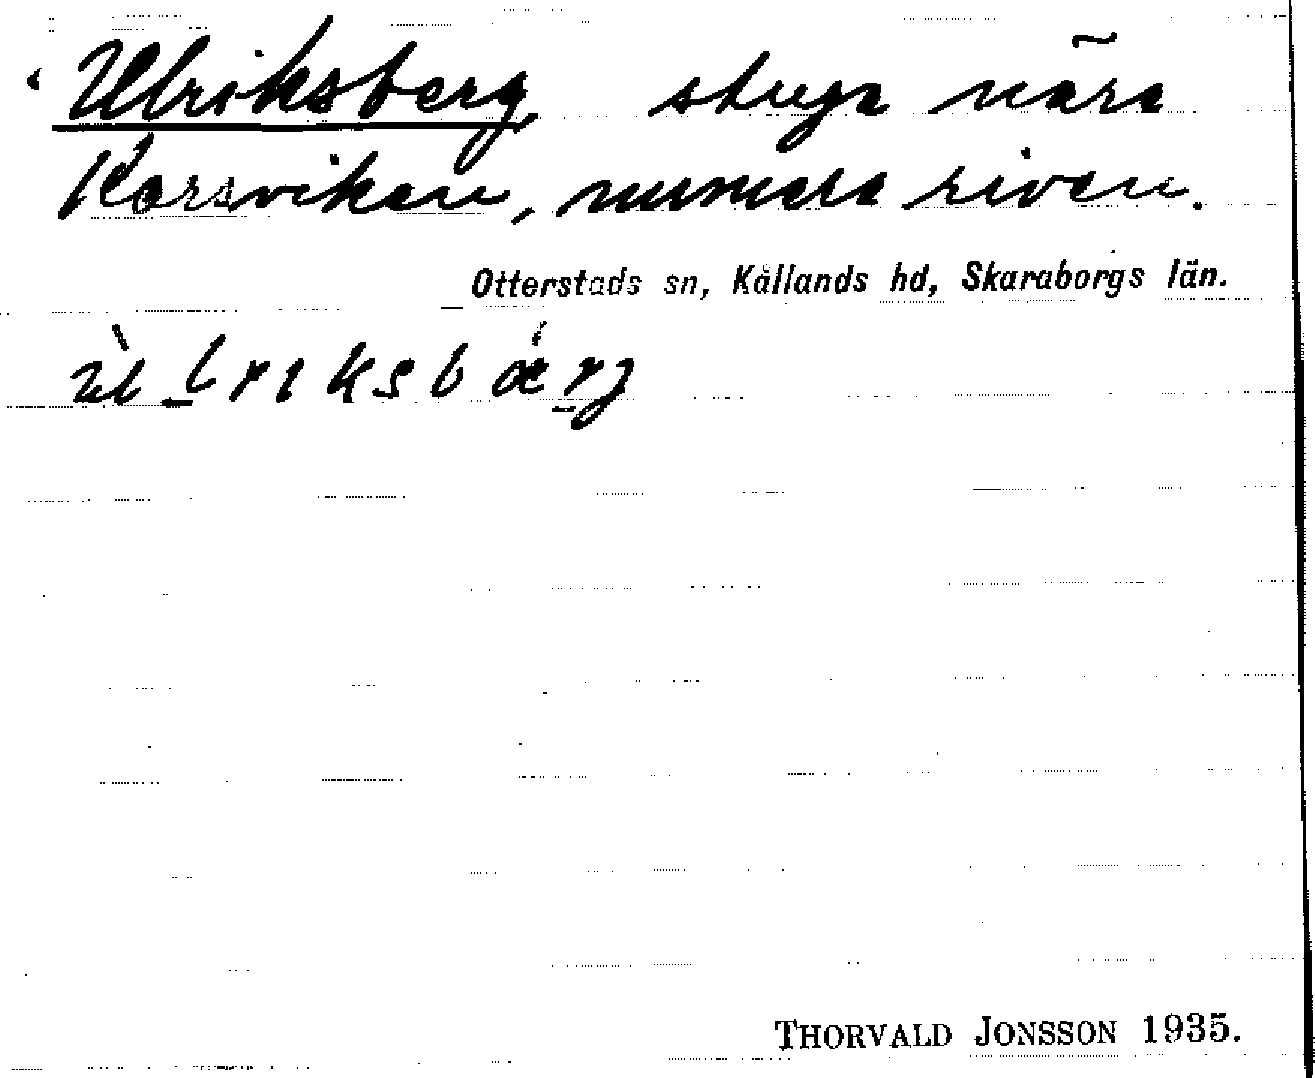 Ulriksberg, stuga nära
Korsviken, numera riven.
Otterstads sn, Kållands hd, Skaraborgs län.
THORVALD JONSSON 1935.